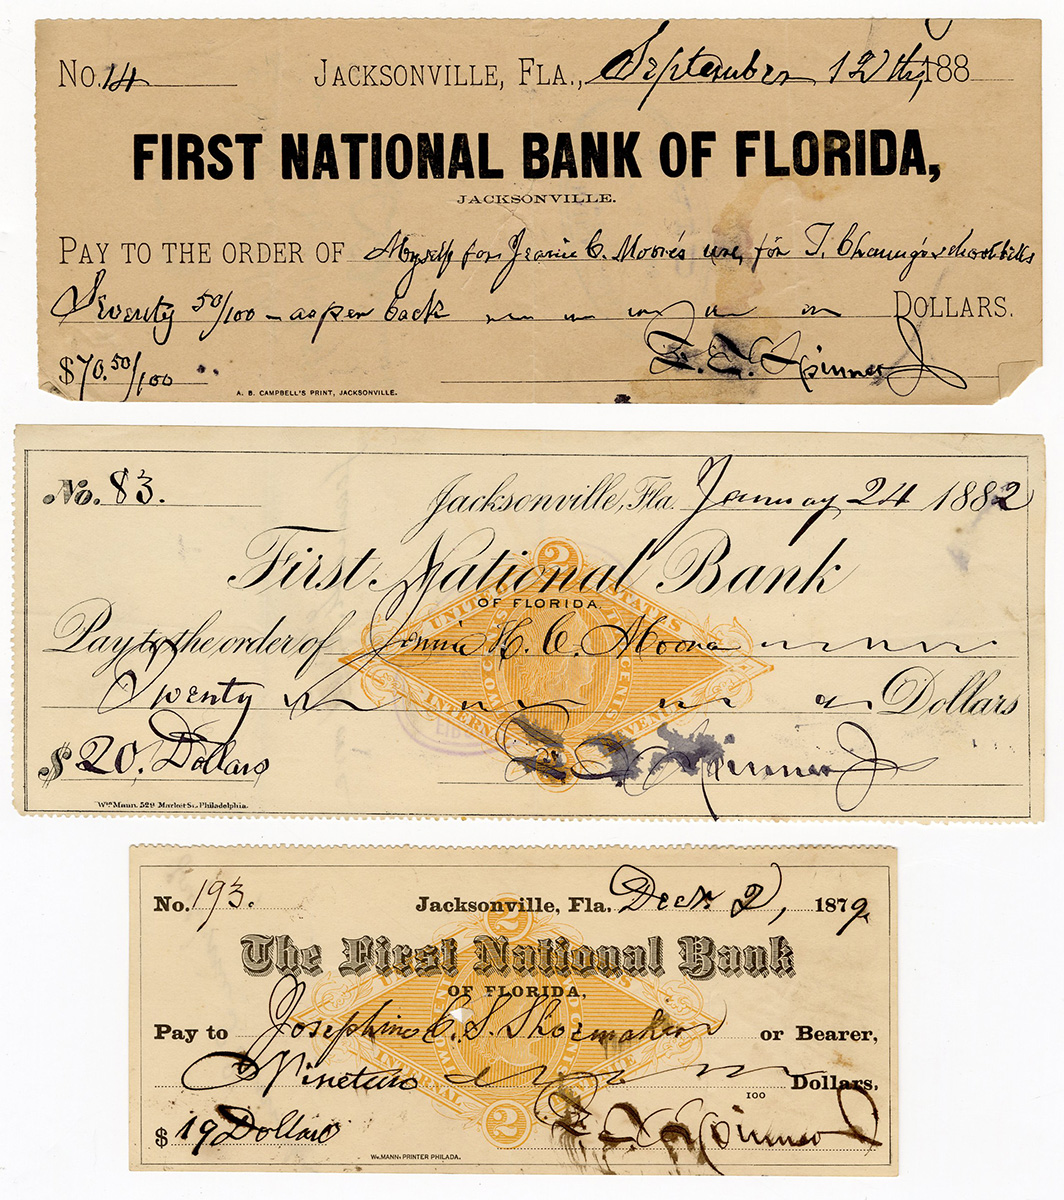 No. 14 JACKSONVILLE, FLA., September 12th, 188
FIRST NATIONAL BANK OF FLORIDA,
JACKSONVILLE.
PAY TO THE ORDER OF Myself for Jennie C. Moore's use, for T. school bills
Seventy 50/100 – as per back DOLLARS.
$70.50/100 F. E. Spinner
A. B. CAMPBELL'S PRINT, JACKSONVILLE.
No. 83. Jacksonville, Fla. January 24 1882
First National Bank
OF FLORIDA.
2
UNITED STATES
Pay to the order of Jennie H. C. Moore
Twenty Dollars
INTERNAL REVENUE
$ 20. Dollars F. E. Spinner
Wm. Mann. 529 Market St. Philadelphia.
No. 193. Jacksonville, Fla. Decr. 2, 1879.
2
The First National Bank
OF FLORIDA,
Pay to Josephine C. S. Shoemaker or Bearer,
INTERNAL REVENUE
Nineteen Dollars.
100
2
$ 19 Dollars F. E. Spinner
WM. MANN, PRINTER PHILADA.